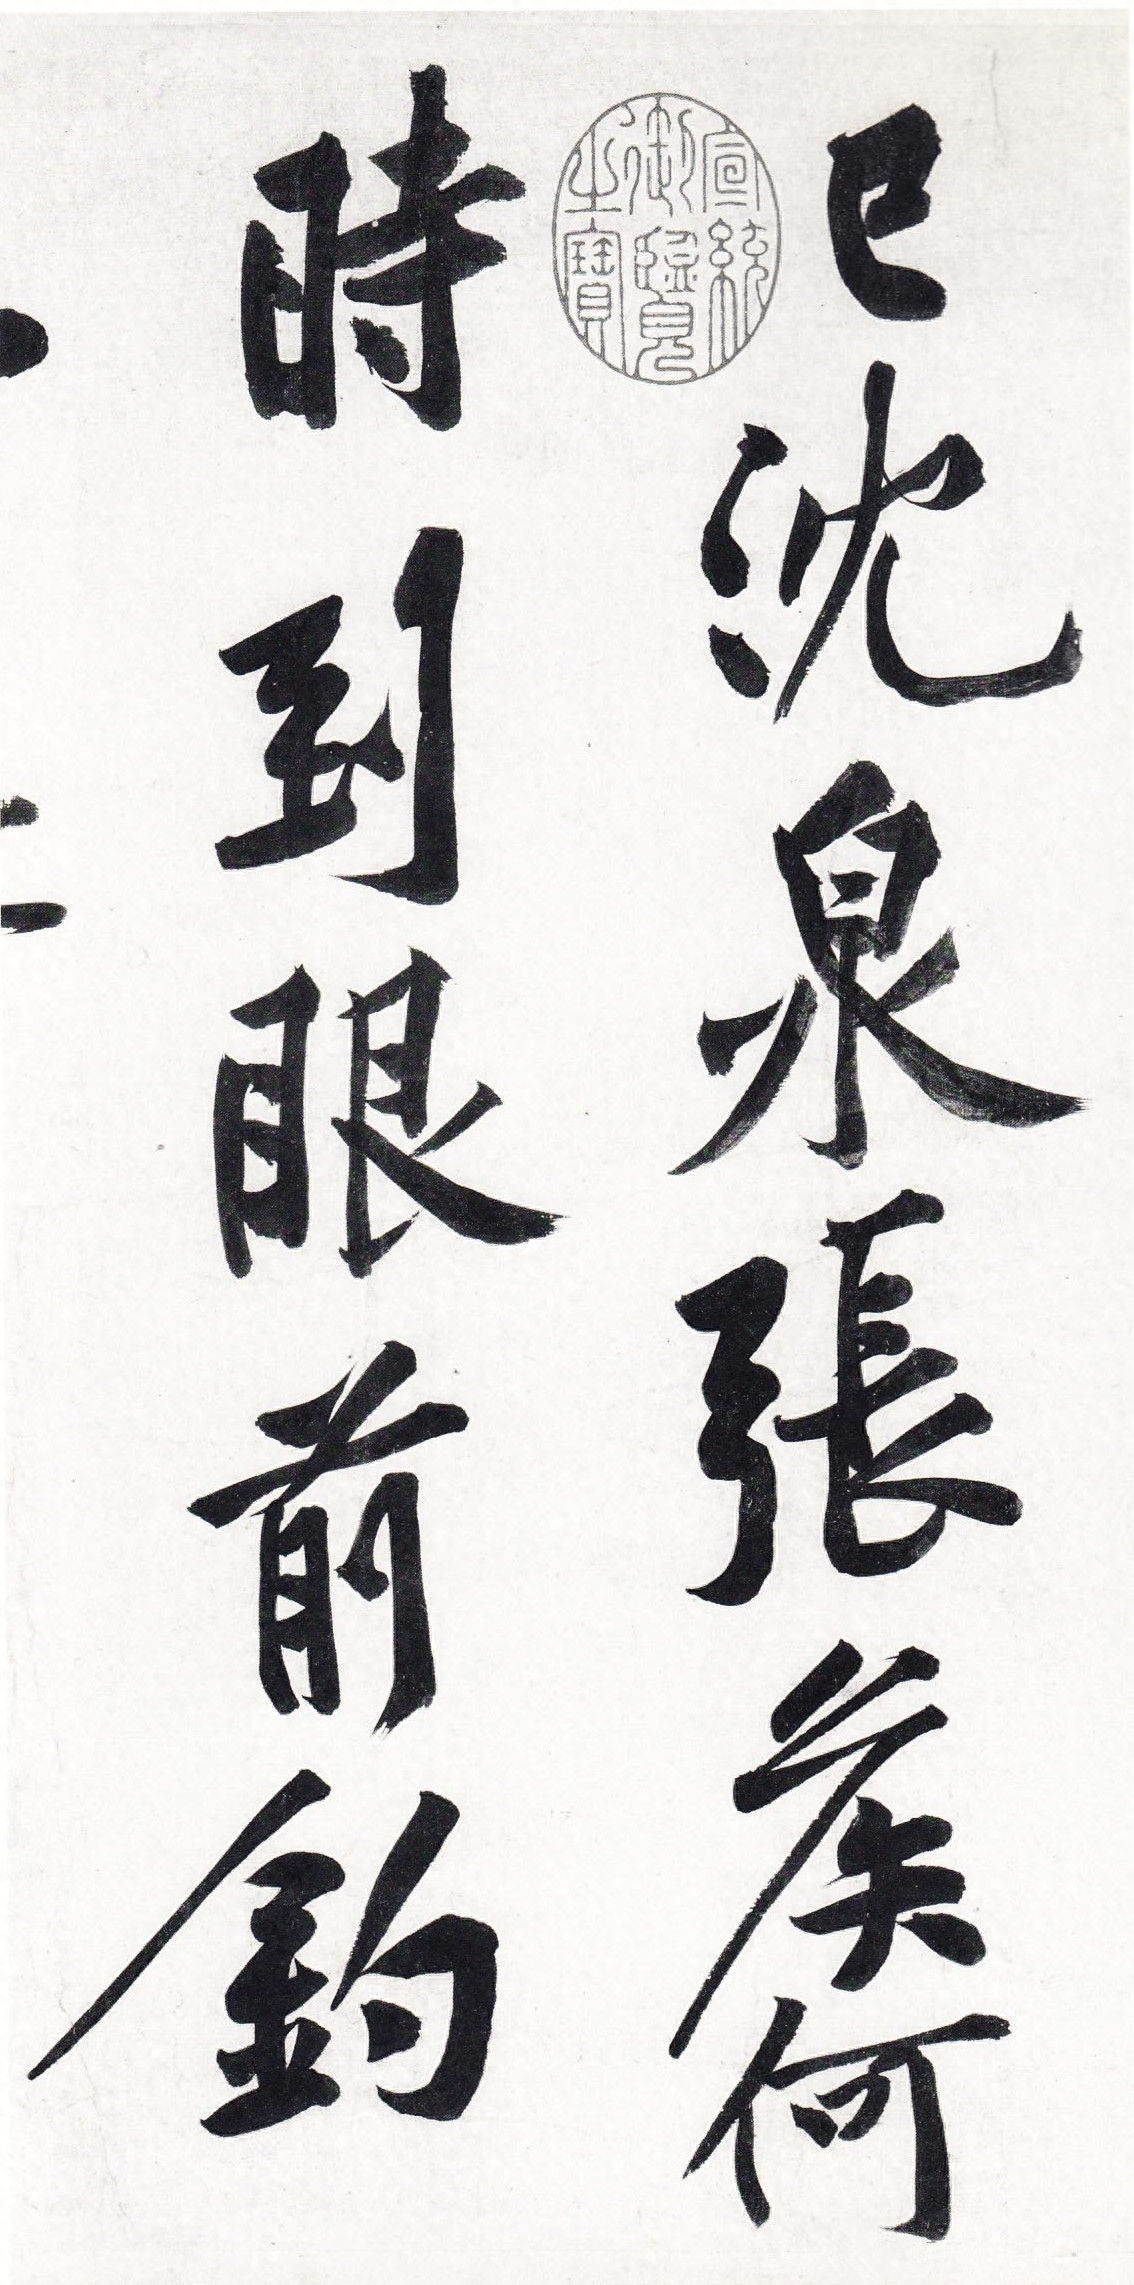 已沈泉張侯何
時到眼前釣
宣統
御覽
之寶